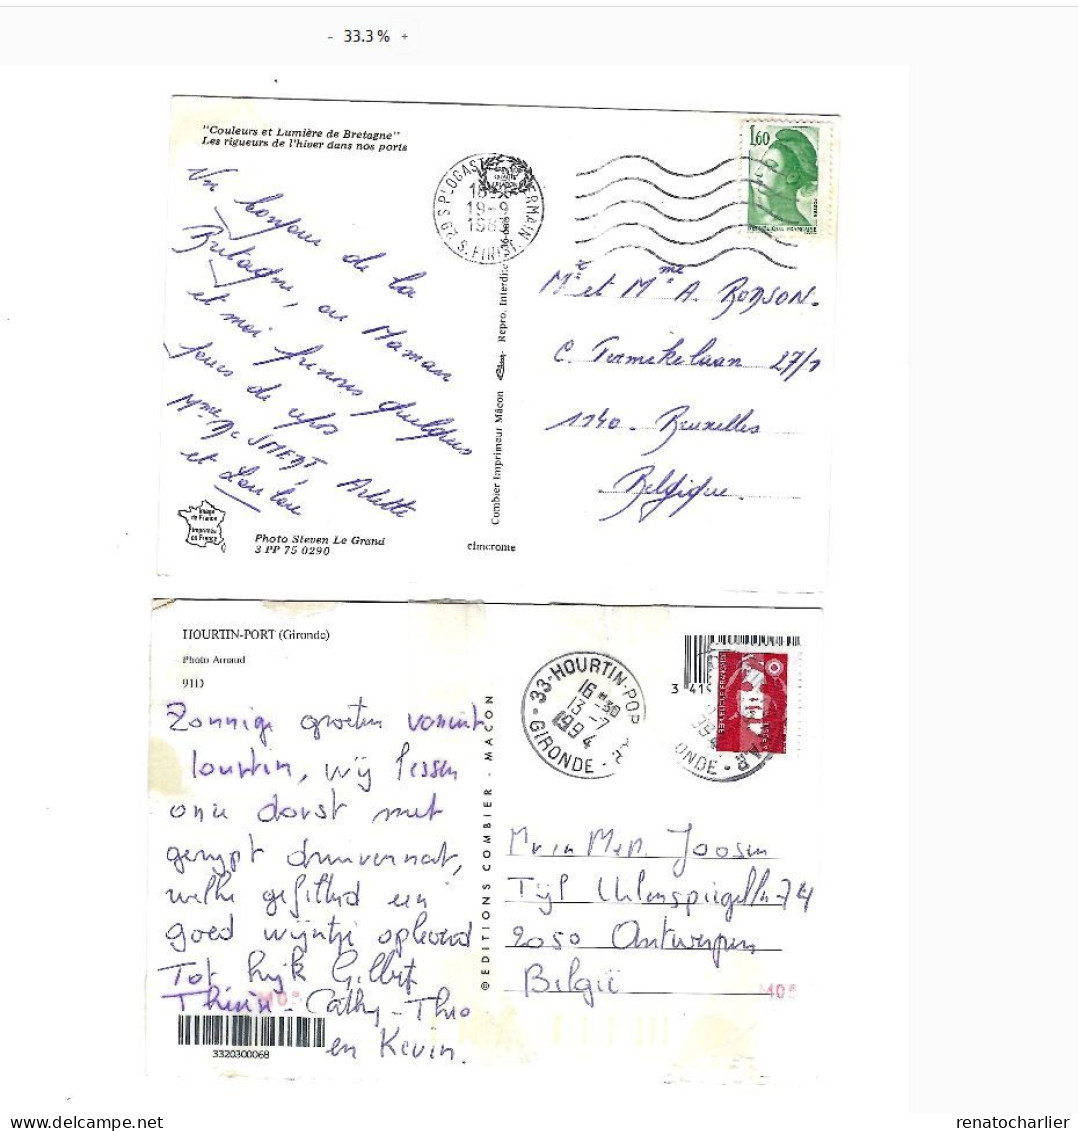 - 33.3 % +
"Couleurs et Lumière de Bretagne"
Les rigueurs de l'hiver dans nos ports
Un bonjour de la
Bretagne, ou Maman
et moi prenons quelques
jours de repos
Mme De SMEDT Arlette
et Loulou
Image
de France
Imprimé
en France
Photo Steven Le Grand
3 PP 75 0290
Combier Imprimeur Mâcon
Repro. Interdite
cimcrome
29 S PLOGAS ERMAIN
S. FINIST.
19-9
1983
1,60
Mr et Mme A. ROBSON.
1140. Bruxelles
Belgique.
HOURTIN-PORT (Gironde)
Photo Arnaud
91D
Zonnige groeten vanuit
Hourtin, wij lessen
onze dorst met
gerypt druivennat,
welke gefilterd een
goed wijntje opleverd
Tot kijk Gilbert
Thérèse - Cathy - Theo
en Kevin.
3320300068
© EDITIONS COMBIER - MACON
33-HOURTIN-POR
16H30
13-7
1994
GIRONDE
Mr en Mev. Joosen
Tijl Uilenspiegelln 74
2050 Antwerpen
België
renatocharlier